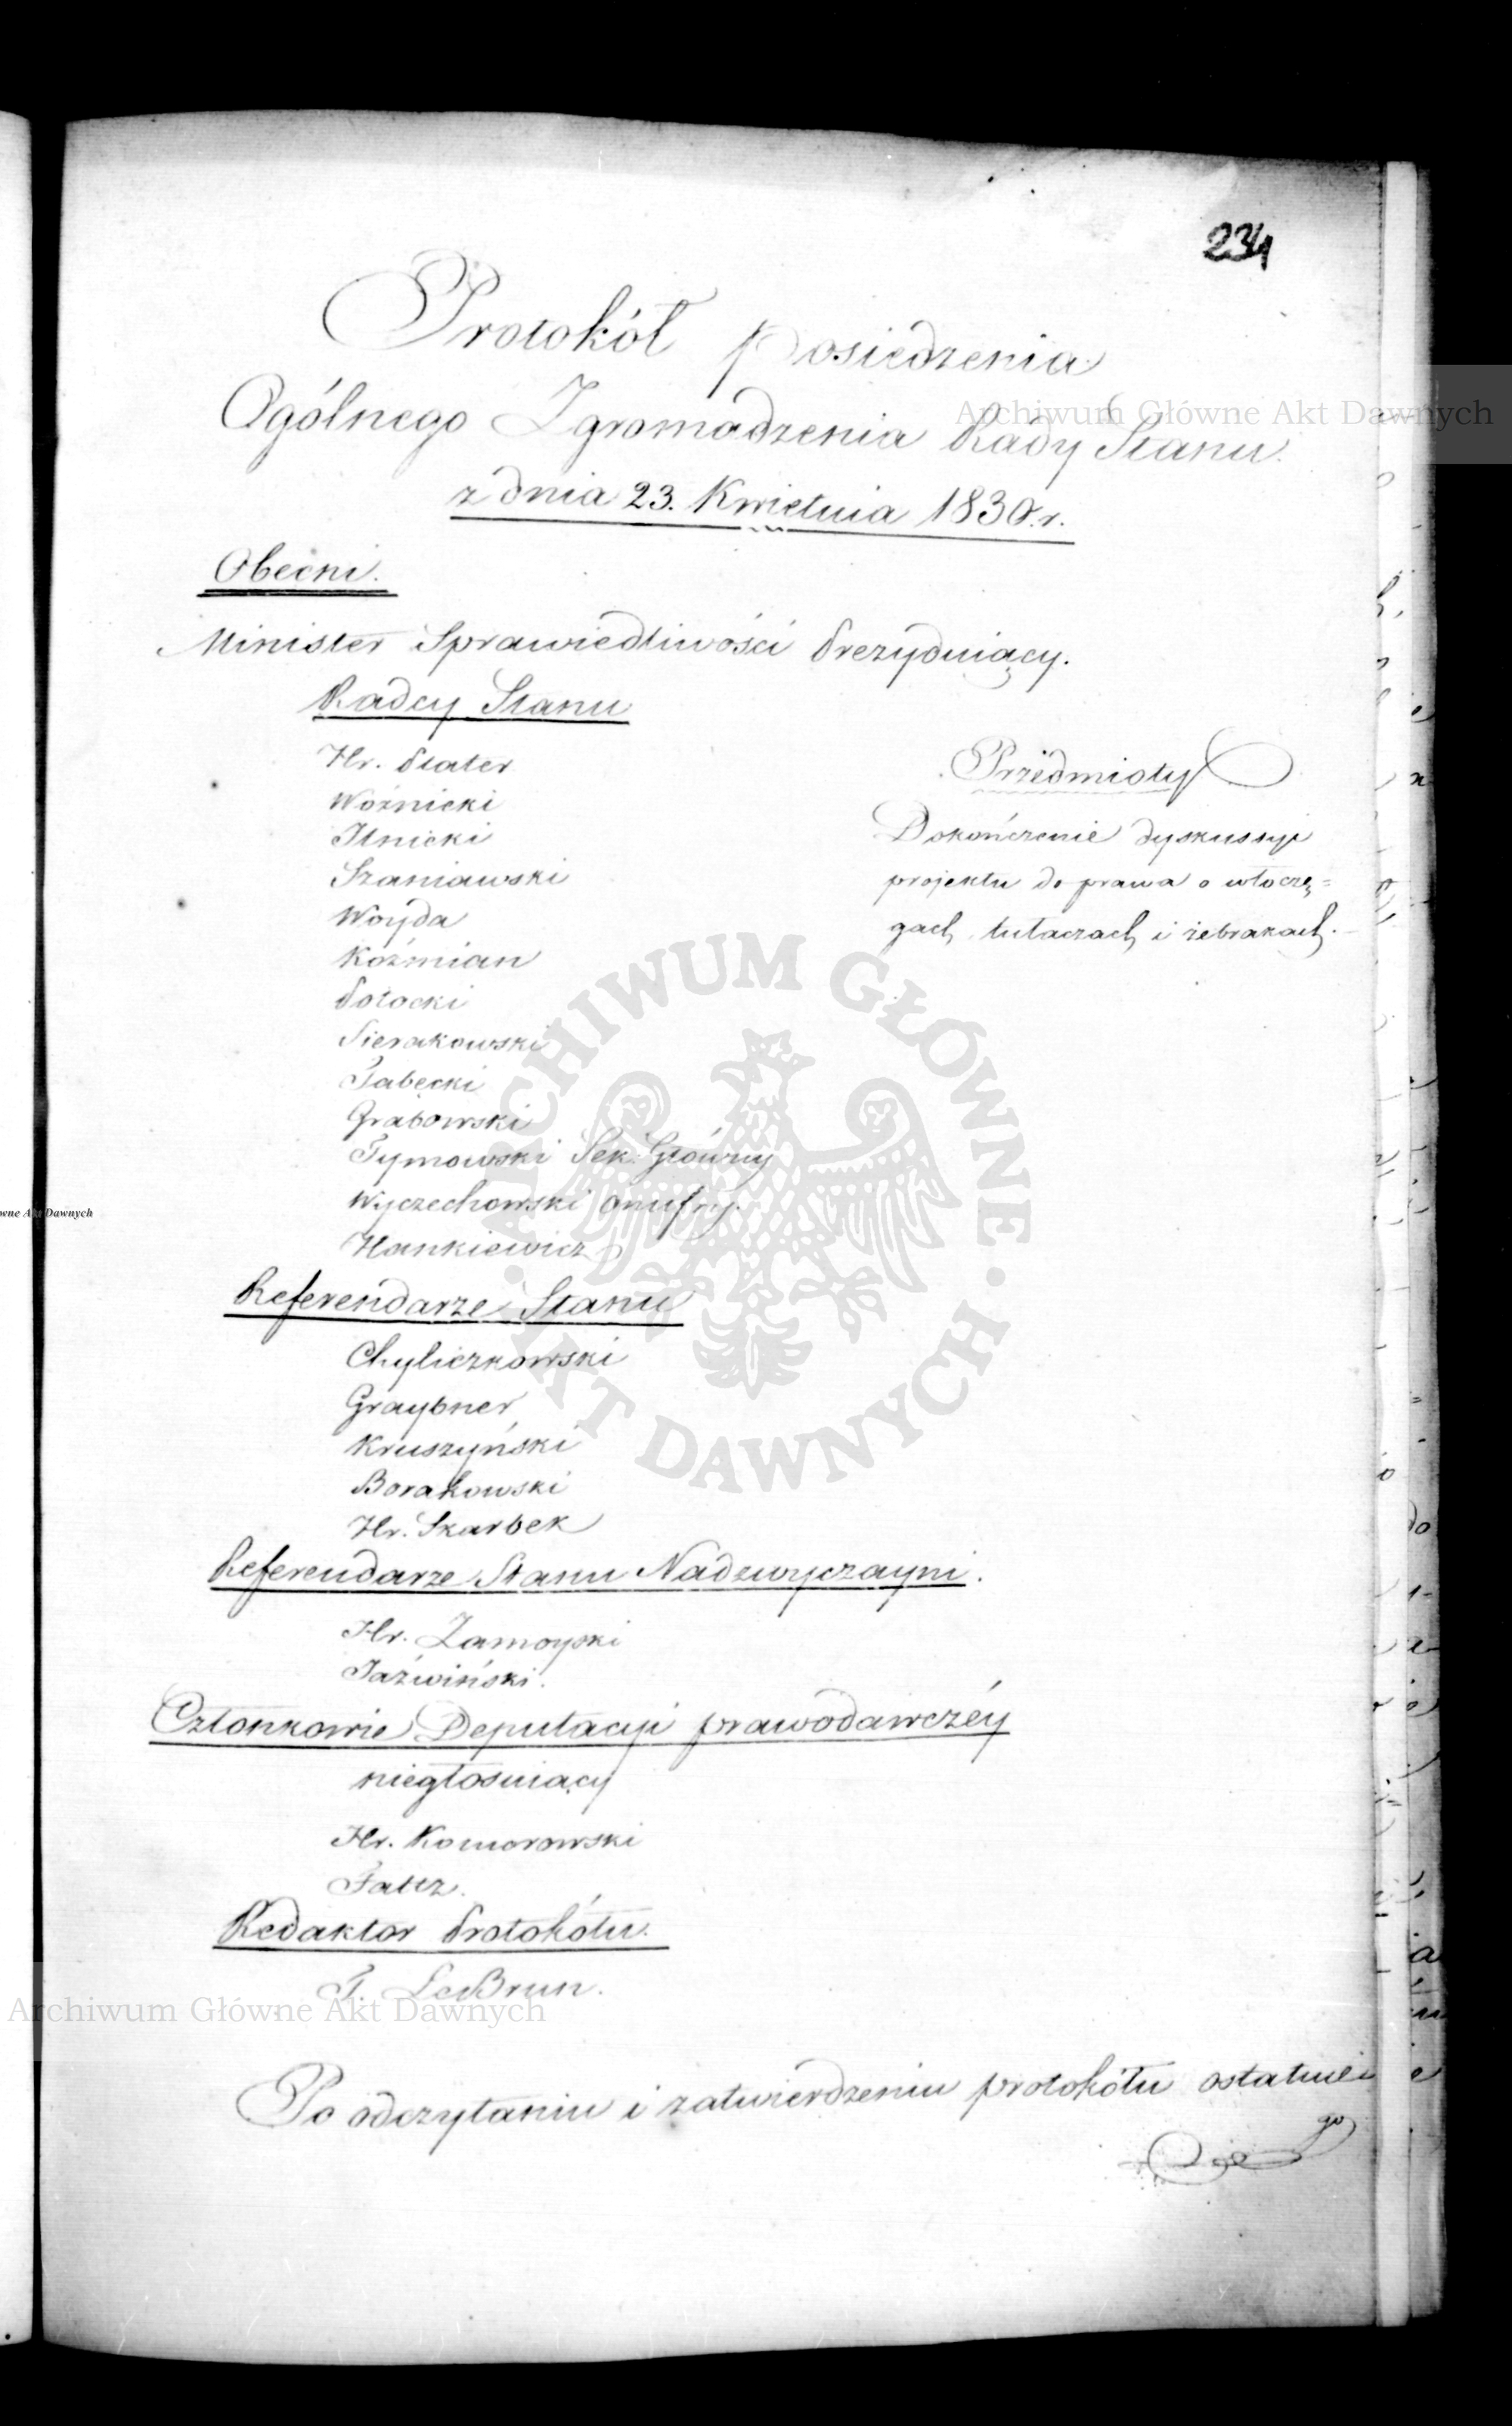 234
Protokół posiedzenia
Ogólnego Zgromadzenia Rady Stanu
z dnia 23. Kwietnia 1830.r.
Obecni.
Minister Sprawiedliwości Prezyduiący.
Radcy Stanu
Hr. Plater
Woźnicki
Ilnicki
Szaniawski
Woyda
Koźmian
Potocki
Sierakowski
Łabęcki
Grabowski
Tymowski Sek. Główny
Wyczechowski Onufry.
Hankiewicz
Przedmioty
Dokończenie dyskussyi
projektu do prawa o włoczę=
gach, tułaczach i żebrakach.
Referendarze Stanu
Chyliczkowski
Graybner
Kruszyński
Borakowski
Hr. Skarbek
Referendarze Stanu Nadzwyczayni.
Hr. Zamoyski
Jaźwiński.
Członkowie Deputacyi prawodawczéy
niegłosuiący
Hr. Komorowski
Faltz.
Redaktor Protokółu.
LeBrun.
Po odczytaniu i zatwierdzeniu protokółu ostatnie
go
Archiwum Główne Akt Dawnych
ARCHIWUM GŁÓWNE · AKT DAWNYCH ·
wne Akt Dawnych
Archiwum Główne Akt Dawnych